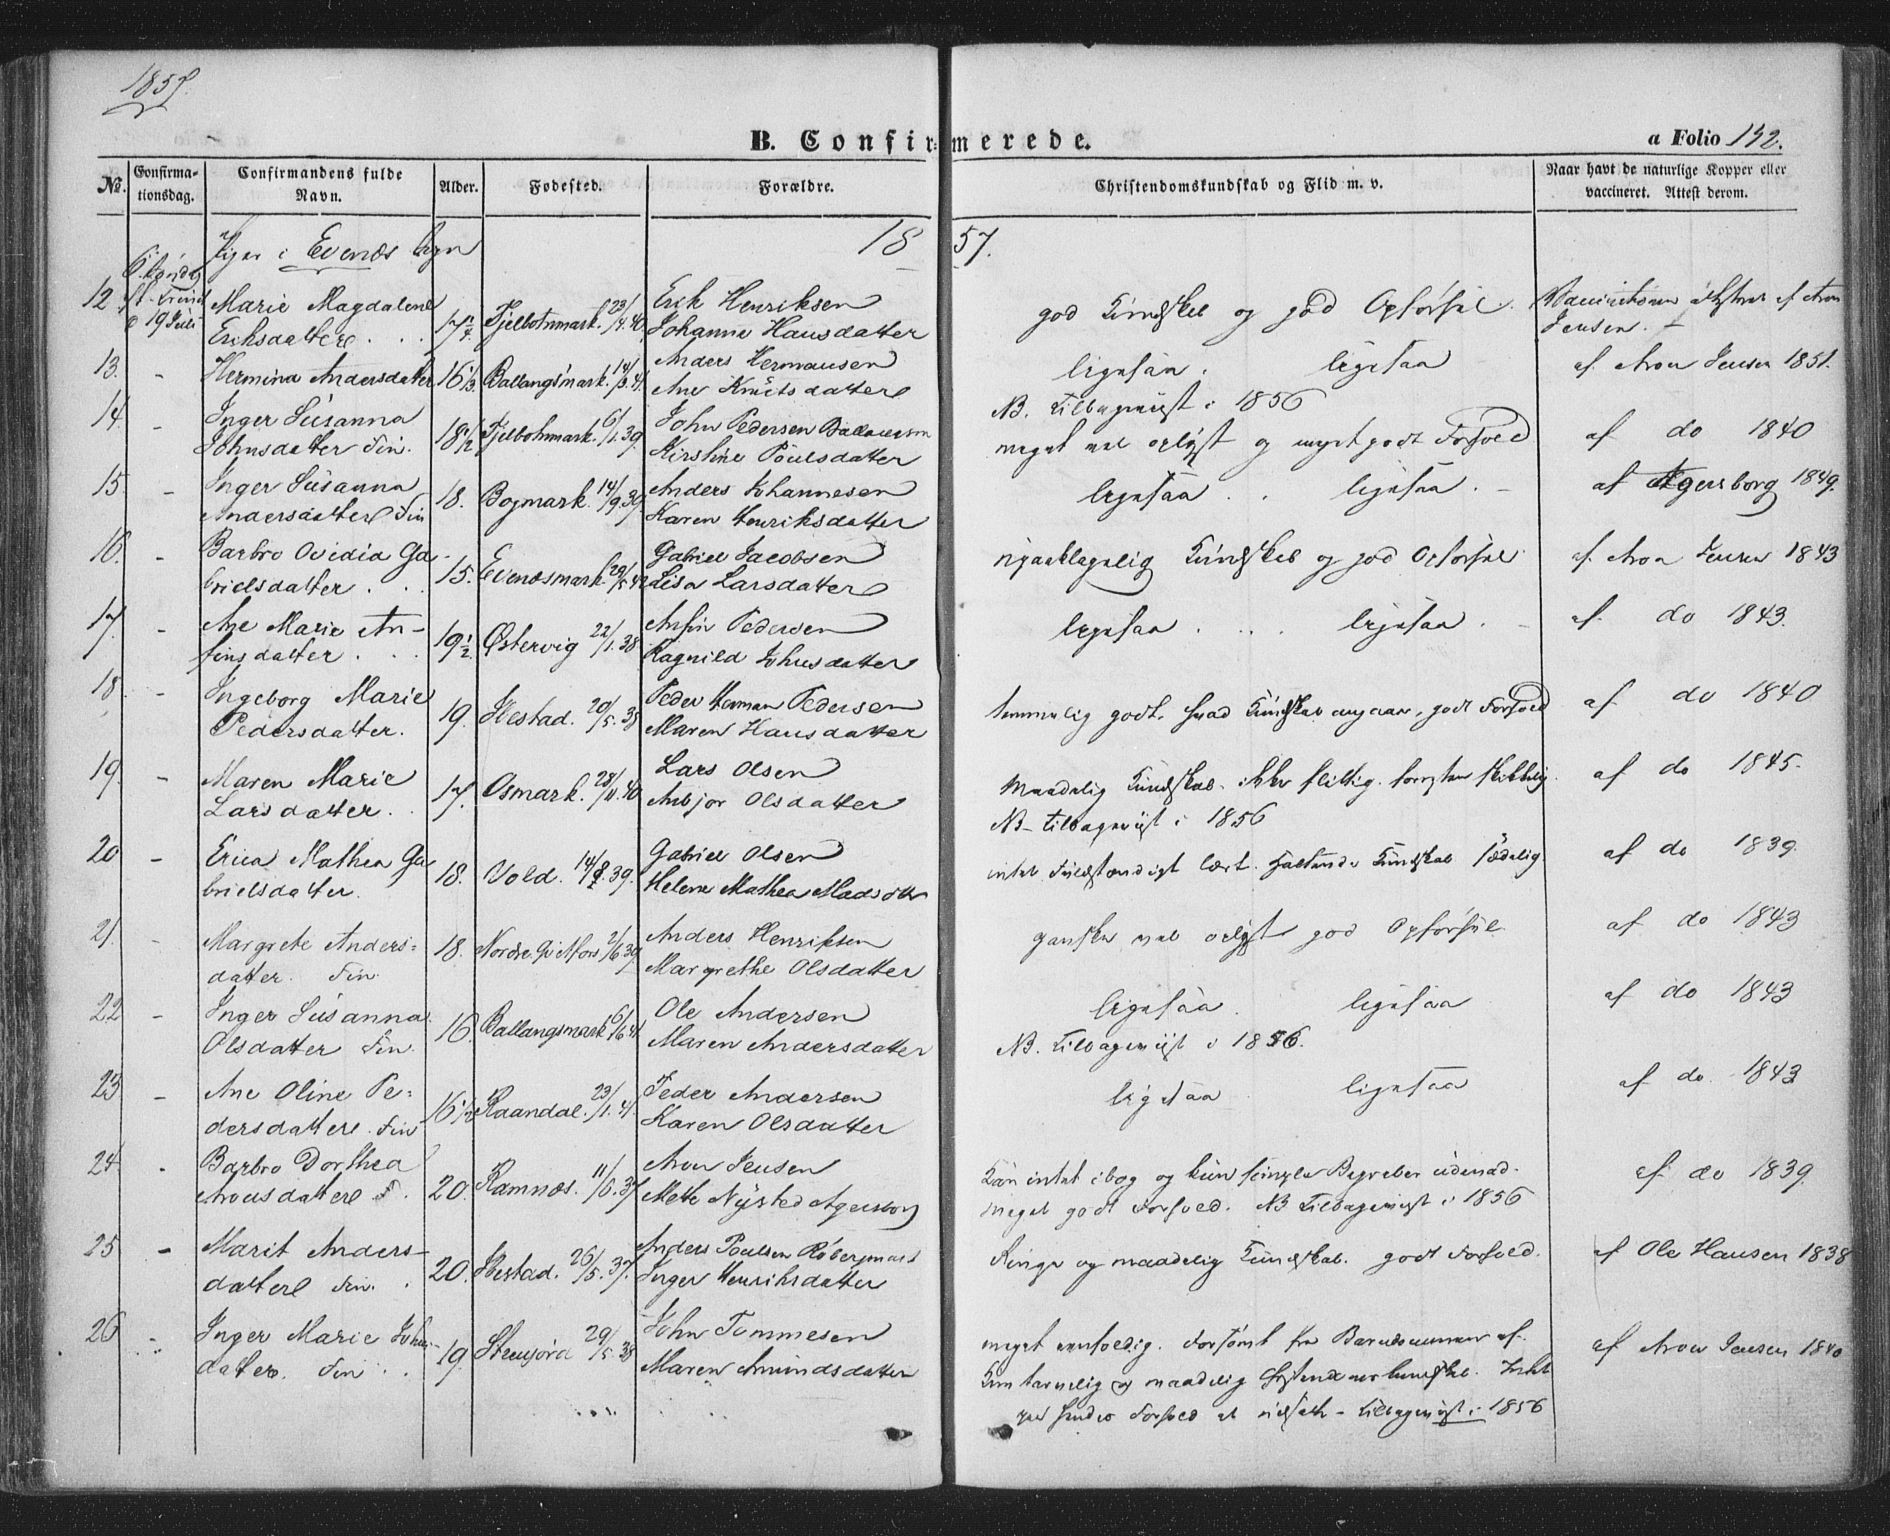 1857.
B. Confirmerede.
a Folio 142.
No.
Confirmationsdag.
Confirmandens fulde Navn.
Alder.
Fødested.
Forældre.
Christendomskundskab og Flid m. v.
Naar havt de naturlige Kopper eller vaccineret. Attest derom.
Piger i Evenæs Sogn
1857.
12 19 Juli Marie Magdalene Eriksdatter 17 1/4 Fjelbotnmark. 23/4.40. Erik Henriksen Johanna Hansdatter god Kundskab og god Opførsel af Aron Jensen.
13. - Hermina Andersdatter 16 1/3 Ballangsmark. 14/3.41. Anders Hermansen Ane Knutsdatter ligesaa. ligesaa af Aron Jensen 1851.
14. - Inger Susanna Johnsdatter Fin. 18 1/2 Fjelbotnmark. 6/1.39. John Pedersen Kirstine Poulsdatter NB. Tilbageviist i 1856 meget vel oplyst og meget godt Forhold af do 1840
15. - Inger Susanna Andersdatter Fin 18. Bogmark. 14/9.39. Anders Johannesen Karen Henriksdatter ligesaa ligesaa. af Agersborg 1849.
16. - Barbro Ovidia Gabrielsdatter 15. Evenæsmark 29/5.42 Gabriel Jacobsen Lisa Larsdatter upaaklagelig Kundskab og god Opførsel af Aron Jensen 1843
17. - Ane Marie Anfinsdatter 19 1/2 Østervig 22/1.38. Anfin Pedersen Ragnild Johnsdatter ligesaa ligesaa. af do 1843.
18. - Ingeborg Marie Pedersdatter. 19. Hestad. 20/5.38 Peder Herman Pedersen Maren Hansdatter temmelig godt, hvad Kundskab angaar, godt Forhold af do 1840
19. - Maren Marie Larsdatter. 17. Osmark. 28/11.40 Lars Olsen Anbjor Olsdatter Maadelig Kundskab. ikke flittig. af do 1845.
20 - Erica Mathea Gabrielsdatter. 18. Vold. 14/8.39. Gabriel Olsen Helene Mathea Madsdtter NB. Tilbageviist i 1856 intet Fuldstændigt lært. Kundskab Sædelig af do 1839.
21. - Margrete Andersdatter. Fin 18. Nordre 2/6.39. Anders Henriksen Margrethe Olsdatter ganske vel oplyst god Opførsel af do 1843
22 - Inger Susanna Olsdatter Fin 16. Ballangsmark 6/6.41 Ole Andersen Maren Andersdatter ligesaa. ligesaa af do 1843
23 - Ane Oline Pedersdatter. Fin 16 1/2 Raandal. 23/1.41. Peder Andersen Karen Olsdatter NB. Tilbageviist i 1856. ligesaa ligesaa af do. 1843
24. - Barbro Dorthea Aronsdatter F. 20. Ramnæs. 11/6.37 Aron Jensen Mette Nysted Agersborg Kan intet i bog og kun simple Begreber udenad. meget godt Forhold. NB Tilbageviist i 1856 af do 1839.
25 - Marit Andersdatter Fin. 20. Hestad. 26/5.37. Anders Poulsen Inger Henriksdatter Ringe og maadelig Kundskab. godt Forhold. af Ole Hansen 1838
26 Inger Marie Johnsdatter. Fin 19. 29/5.38 John Tommesen Maren Amundsdatter meget eenfoldig. Forsømt fra Barndommen af. Kun tarvelig og maadelig Intet paa hendes Forhold at udsætte - Tilbageviist i 1856 af Aron Jensen 1840